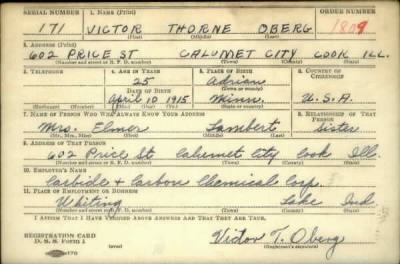 SERIAL NUMBER 1. NAME (Print) ORDER NUMBER
171 VICTOR THORNE OBERG 1809
(First) (Middle) (Last)
2. ADDRESS (Print)
602 PRICE ST CALUMET CITY COOK ILL.
(Number and street or R. F. D. number) (Town) (County) (State)
3. TELEPHONE 4. AGE IN YEARS 5. PLACE OF BIRTH 6. COUNTRY OF CITIZENSHIP
25 Adrian
DATE OF BIRTH (Town or county)
April 10 1915 Minn. U.S.A.
(Exchange) (Number) (Mo.) (Day) (Yr.) (State or country)
7. NAME OF PERSON WHO WILL ALWAYS KNOW YOUR ADDRESS 8. RELATIONSHIP OF THAT PERSON
Mrs. Elmer Lambert Sister
(Mr., Mrs., Miss) (First) (Middle) (Last)
9. ADDRESS OF THAT PERSON
602 Price St Calumet City Cook Ill.
(Number and street or R. F. D. number) (Town) (County) (State)
10. EMPLOYER'S NAME
Carbide & Carbon Chemical Corp.
11. PLACE OF EMPLOYMENT OR BUSINESS
Whiting Lake Ind.
(Number and street or R. F. D. number) (Town) (County) (State)
I AFFIRM THAT I HAVE VERIFIED ABOVE ANSWERS AND THAT THEY ARE TRUE.
REGISTRATION CARD
D. S. S. Form 1 (over) Victor T. Oberg
(Registrant's signature)